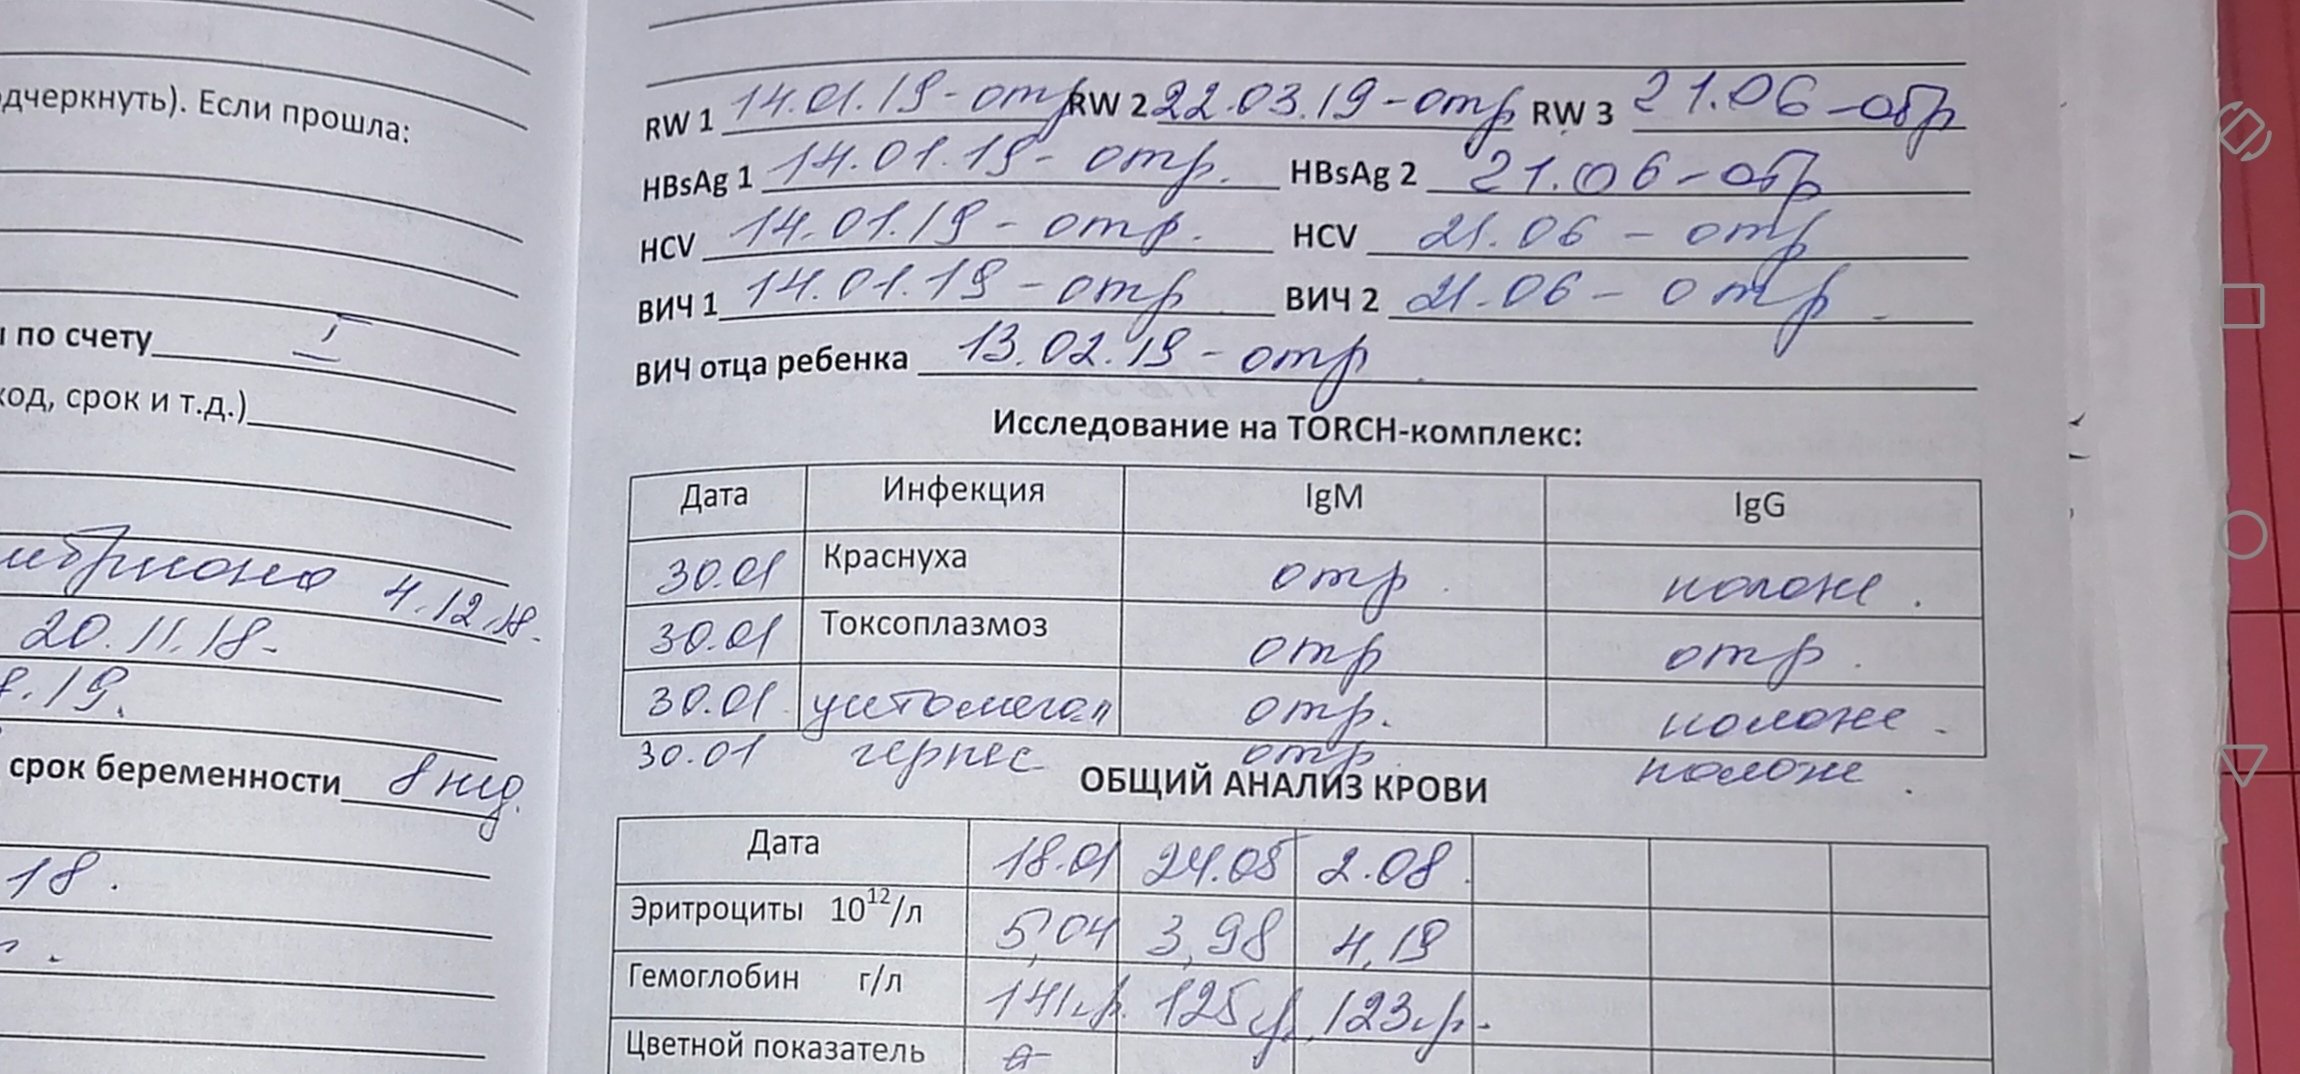 дчеркнуть). Если прошла:
по счету I
од, срок и т.д.)
4.12.18.
20.11.18.
.19.
срок беременности 8 нед.
18.
RW 1 14.01.19 - отр RW 2 22.03.19 - отр RW 3 21.06 - обр
HBsAg 1 14.01.19 - отр. HBsAg 2 21.06 - обр
HCV 14.01.19 - отр. HCV 21.06 - отр
ВИЧ 1 14.01.19 - отр ВИЧ 2 21.06 - отр
ВИЧ отца ребенка 13.02.19 - отр
Исследование на TORCH-комплекс:
Дата Инфекция IgM IgG
30.01 Краснуха отр. полож.
30.01 Токсоплазмоз отр отр.
30.01 цитомегал отр. полож.
30.01 герпес отр полож.
ОБЩИЙ АНАЛИЗ КРОВИ
Дата 18.01 24.05 2.08.
Эритроциты 10¹²/л 5,04 3,98 4,19
Гемоглобин г/л 141гр. 125гр. 123гр.
Цветной показатель